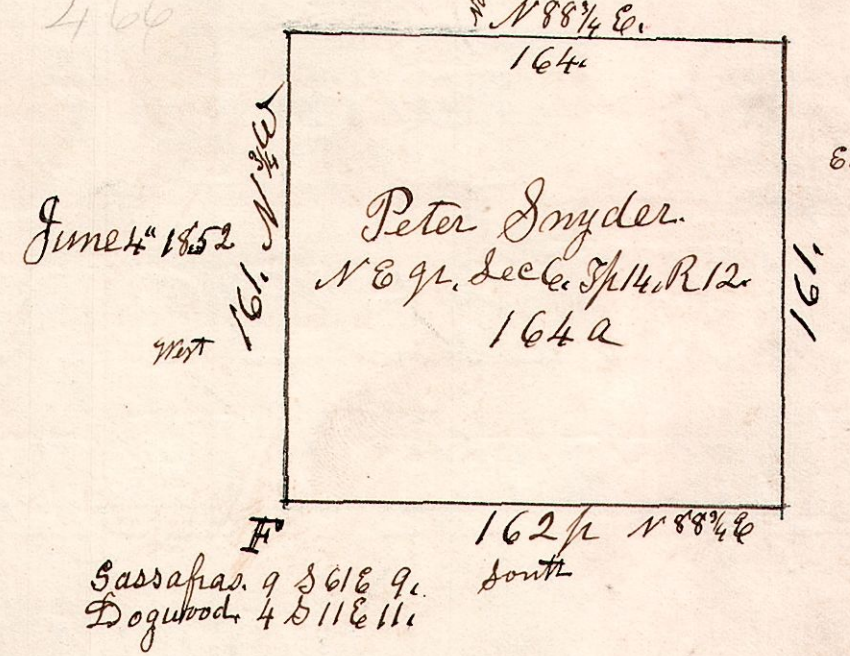 466
N 88 3/4 E.
164.
161. N 3/4 W
E.
June 4" 1852
Peter Snyder.
N E qr. Sec 6. Tp 14. R 12.
164 a
161.
West
F
162 p N 88 3/4 E
South
Sassafras. 9 S 61 E 9.
Dogwood. 4 S 11 E 11.